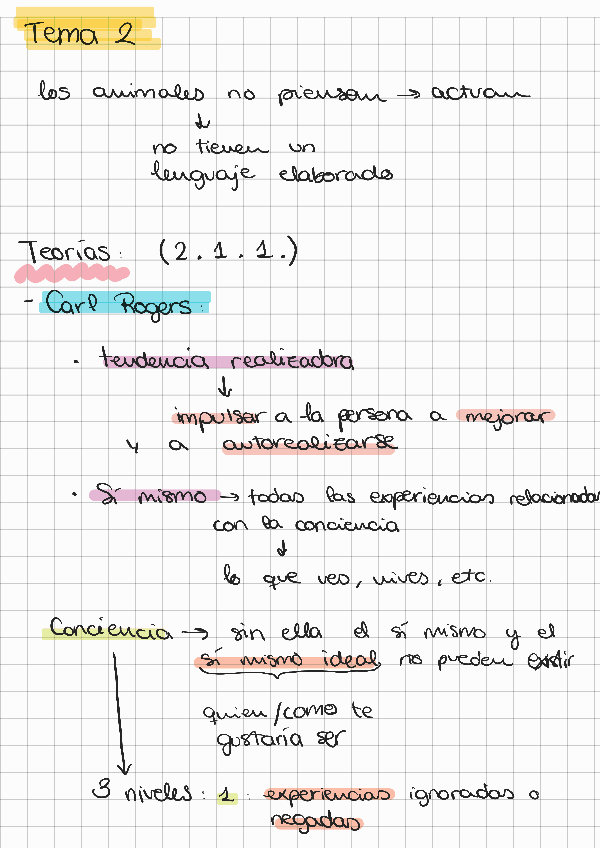 Tema 2
los animales no piensan → actuan
↓
no tienen un
lenguaje elaborado
Teorías: (2.1.1.)
- Carl Rogers:
· tendencia realizadora
↓
impulsar a la persona a mejorar
y a autorealizarse
· Sí mismo → todas las experiencias relacionadas
con la conciencia
↓
lo que ves, vives, etc.
Conciencia → sin ella el sí mismo y el
sí mismo ideal no pueden existir
quien/como te
gustaría ser
3 niveles: 1: experiencias ignoradas o
negadas